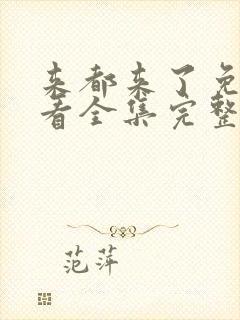 来都来了免
看全集完整
范萍